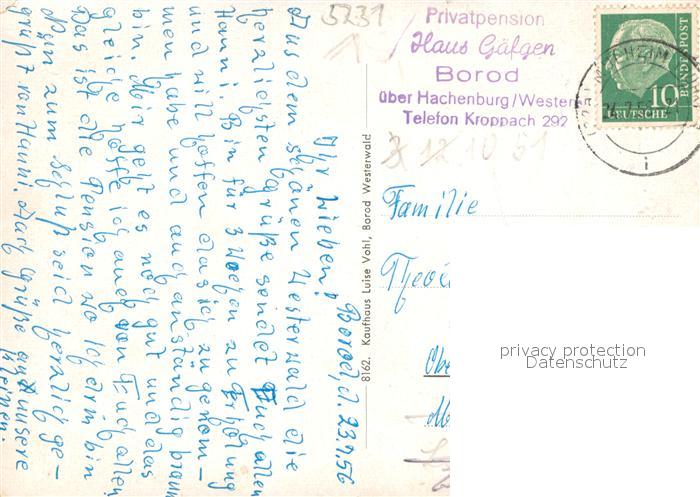 5231
Privatpension
Haus Gäfgen
Borod
über Hachenburg/Western
Telefon Kroppach 292
10
DEUTSCHE
BUNDESPOST
Borod, d. 23.7.56
Ihr Lieben!
Aus dem schönen Westerwald die
herzlichsten Grüße sendet Euch allen
Hanni. Bin für 3 Wochen zu Erholung
und will hoffen das ich zugenom-
men habe und auch anständig braun
bin. Mir geht es noch gut und das
gleiche hoffe ich auch von Euch allen.
Das ist die Pension wo ich drin bin
Nun zum Schluß seid herzlich ge-
grüßt von Hanni. Auch Grüße an unsere
Kleinen.
8162. Kaufhaus Luise Vohl, Borod Westerwald
Familie
privacy protection
Datenschutz